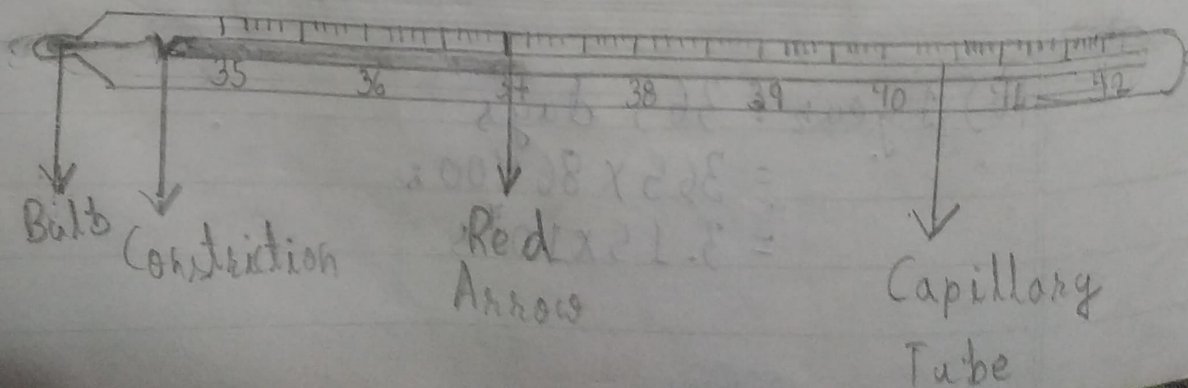 35 36 37 38 39 40 41 42
Bulb
Constriction
Red
Arrow
Capillary
Tube
= 365 x 86400